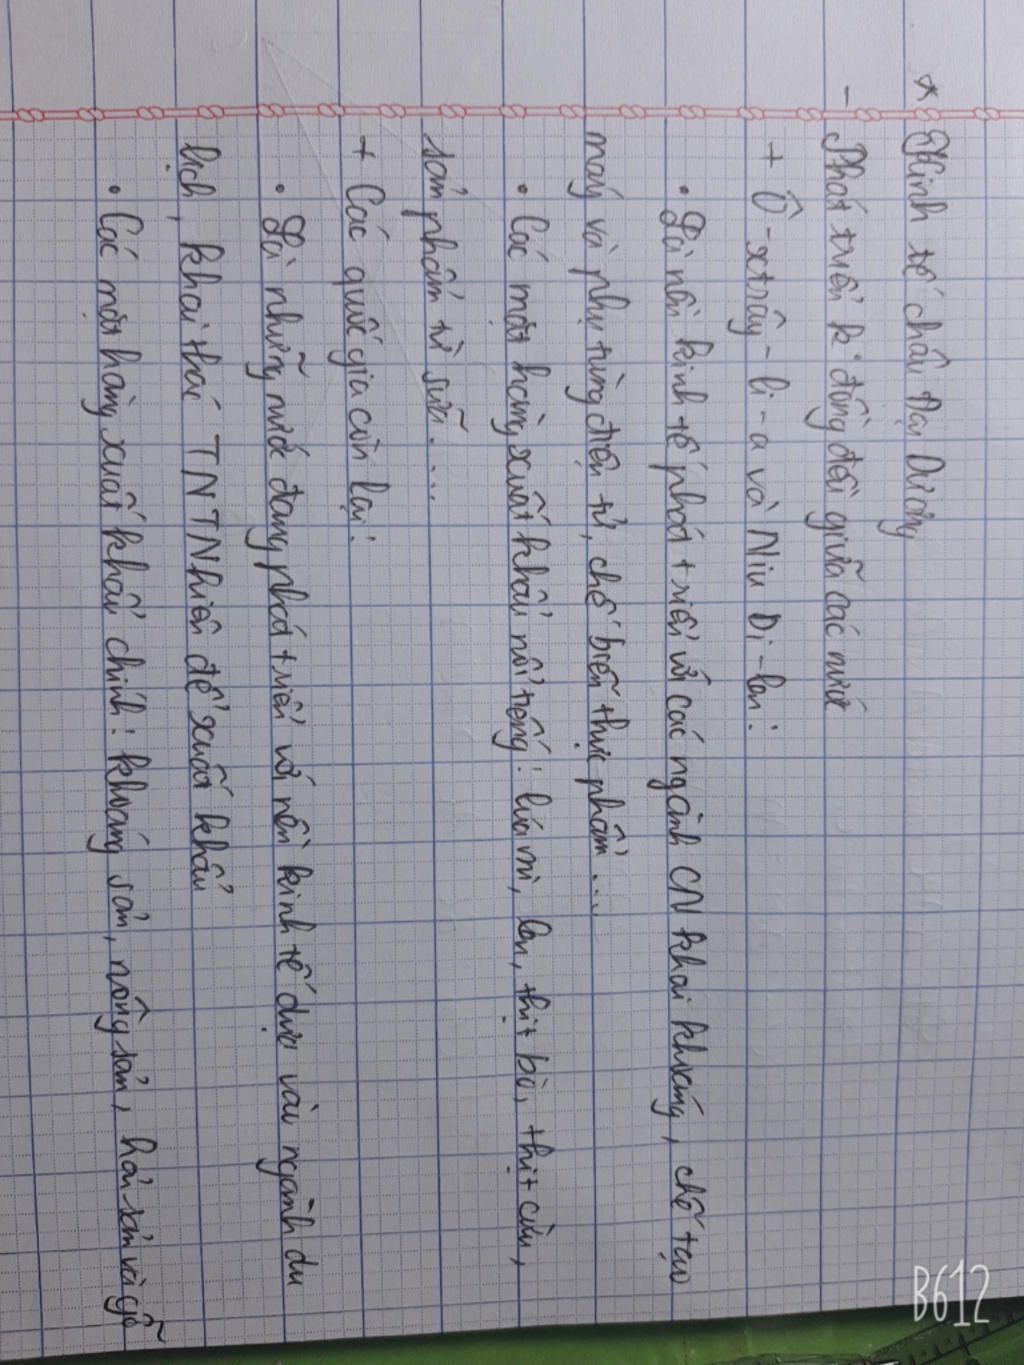 * Kinh tế châu Đại Dương
- Phát triển k. đồng đều giữa các nước
+ Ô-xtrây-li-a và Niu Di-len:
• Là nền kinh tế phát triển với các ngành CN khai khoáng, chế tạo
máy và phụ tùng điện tử, chế biến thực phẩm...
• Các mặt hàng xuất khẩu nổi tiếng: lúa mì, len, thịt bò, thịt cừu,
sản phẩm từ sữa....
+ Các quốc gia còn lại:
• Là những nước đang phát triển với nền kinh tế dựa vào ngành du
lịch, khai thác TNTNhiên để xuất khẩu
• Các mặt hàng xuất khẩu chính: khoáng sản, nông sản, hải sản và gỗ
B612